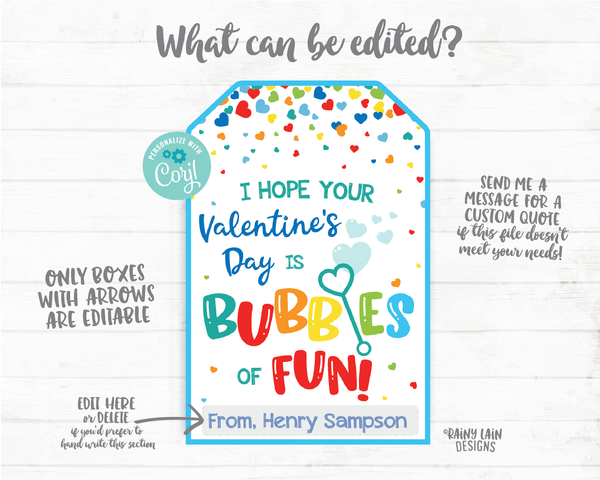 What can be edited?
PERSONALIZE WITH
Corjl
I HOPE YOUR
Valentine's
Day IS
BUBBLES
OF FUN!
From, Henry Sampson
ONLY BOXES
WITH ARROWS
ARE EDITABLE
EDIT HERE
or DELETE
if you'd prefer to
hand write this section
SEND ME A
MESSAGE FOR A
CUSTOM QUOTE
if this file doesn't
meet your needs!
©RAINY LAIN
DESIGNS